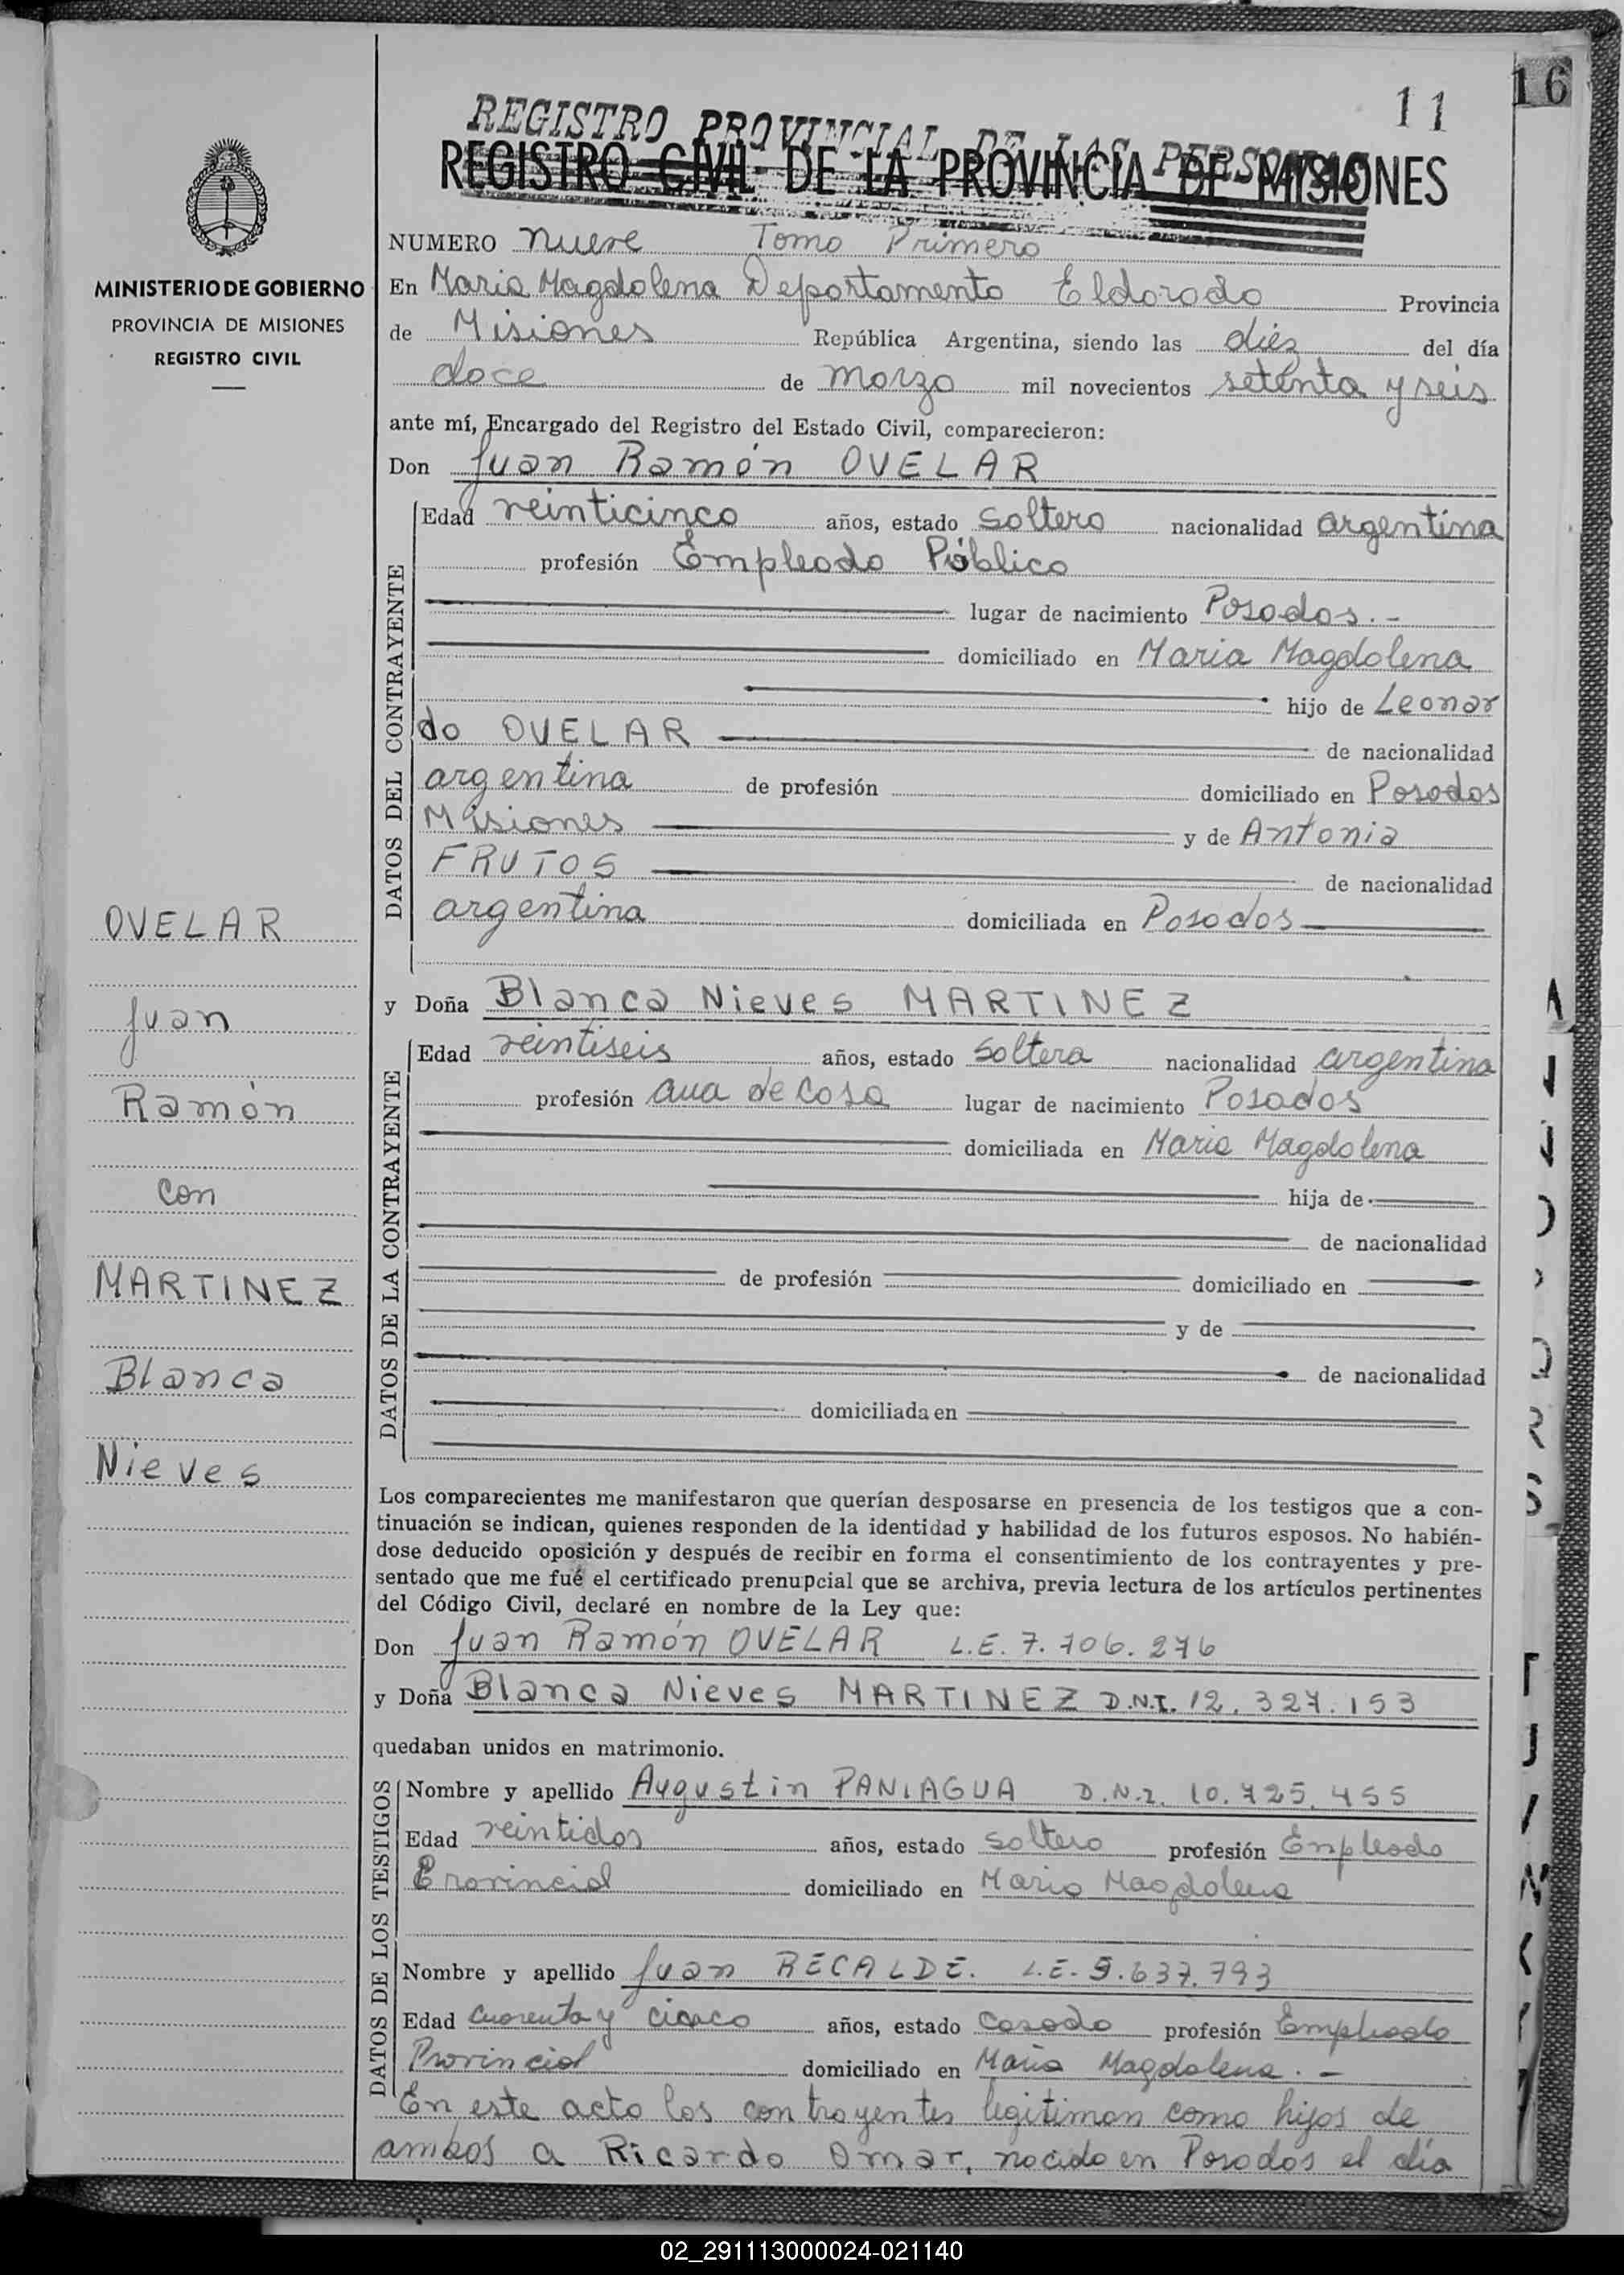 16
11
REGISTRO PROVINCIAL DE LAS PERSONAS
REGISTRO CIVIL DE LA PROVINCIA DE MISIONES
MINISTERIO DE GOBIERNO
PROVINCIA DE MISIONES
REGISTRO CIVIL
OVELAR
Juan
Ramón
con
MARTINEZ
Blanca
Nieves
NUMERO nueve Tomo Primero
En Maria Magdalena Departamento Eldorado Provincia
de Misiones República Argentina, siendo las diez del día
doce de marzo mil novecientos setenta y seis
ante mí, Encargado del Registro del Estado Civil, comparecieron:
Don Juan Ramón OVELAR
DATOS DEL CONTRAYENTE
Edad veinticinco años, estado soltero nacionalidad argentina
profesión Empleado Público
lugar de nacimiento Posadas.-
domiciliado en Maria Magdalena
hijo de Leonar
do OVELAR de nacionalidad
argentina de profesión domiciliado en Posadas
Misiones y de Antonia
FRUTOS de nacionalidad
argentina domiciliada en Posadas
y Doña Blanca Nieves MARTINEZ
DATOS DE LA CONTRAYENTE
Edad veintiseis años, estado soltera nacionalidad argentina
profesión ama de casa lugar de nacimiento Posadas
domiciliada en Maria Magdalena
hija de
de nacionalidad
de profesión domiciliado en
y de
de nacionalidad
domiciliada en
Los comparecientes me manifestaron que querían desposarse en presencia de los testigos que a con-
tinuación se indican, quienes responden de la identidad y habilidad de los futuros esposos. No habién-
dose deducido oposición y después de recibir en forma el consentimiento de los contrayentes y pre-
sentado que me fué el certificado prenupcial que se archiva, previa lectura de los artículos pertinentes
del Código Civil, declaré en nombre de la Ley que:
Don Juan Ramón OVELAR L.E. 7.706.276
y Doña Blanca Nieves MARTINEZ D.N.I. 12.327.153
quedaban unidos en matrimonio.
DATOS DE LOS TESTIGOS
Nombre y apellido Augustin PANIAGUA D.N.I. 10.725.455
Edad veintidos años, estado soltero profesión Empleado
Provincial domiciliado en Maria Magdalena
Nombre y apellido Juan RECALDE. L.E. 5.637.793
Edad cuarenta y cinco años, estado casado profesión Empleado
Provincial domiciliado en Maria Magdalena.-
En este acto los contrayentes legitiman como hijos de
ambos a Ricardo Omar, nacido en Posadas el día
02_291113000024-021140